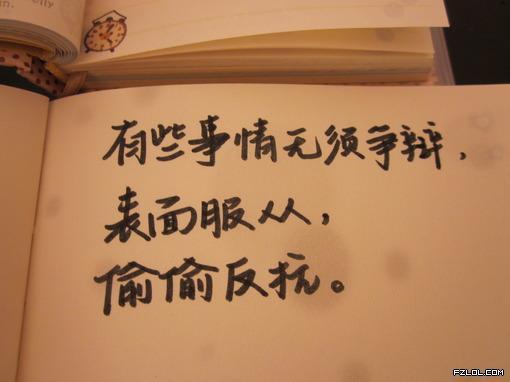 有些事情无须争辩，
表面服从，
偷偷反抗。
FZLOL.COM